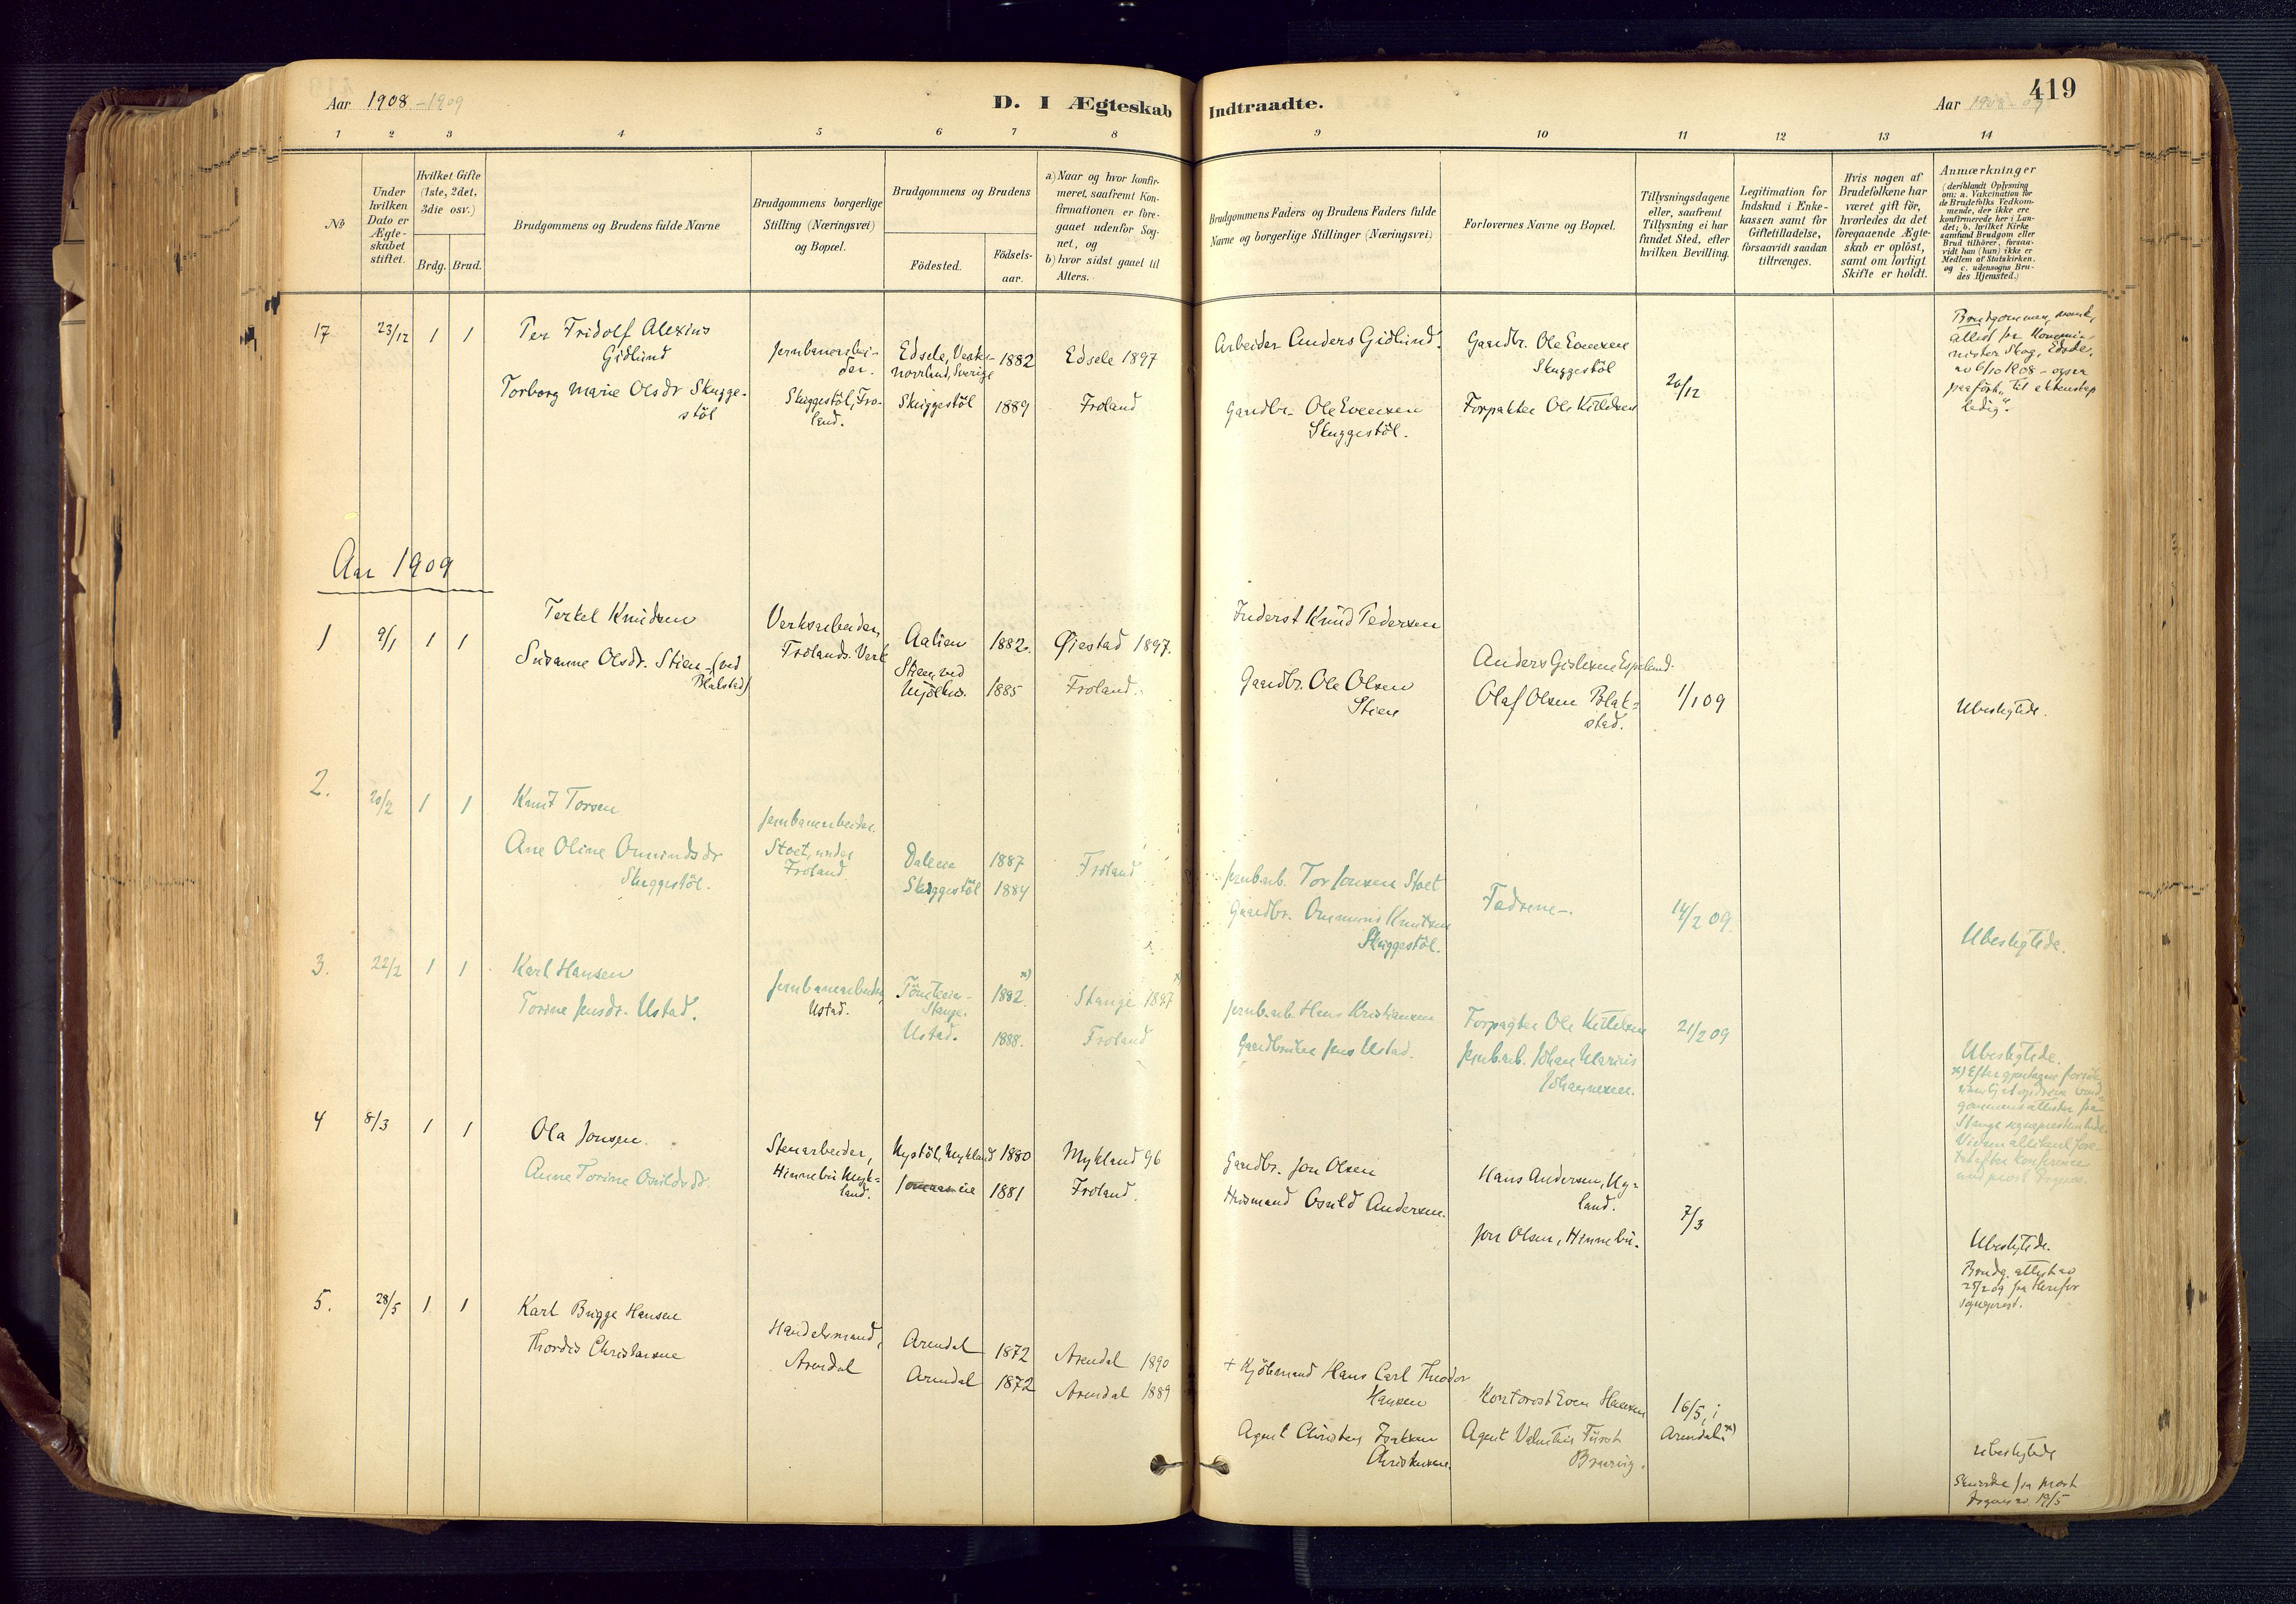 Aar 1908-1909
D. I Ægteskab Indtraadte.
Aar 1908-09
419
1 2 3 4 5 6 7 8 9 10 11 12 13 14
No
Under hvilken Dato er Ægteskabet stiftet.
Hvilket Gifte (1ste, 2det, 3die osv.)
Brdg. Brud.
Brudgommens og Brudens fulde Navne
Brudgommens borgerlige Stilling (Næringsvei) og Bopæl.
Brudgommens og Brudens
Födested.
Födselsaar.
a) Naar og hvor konfirmeret, saafremt Konfirmationen er foregaaet udenfor Sognet, og
b) hvor sidst gaaet til Alters.
Brudgommens Faders og Brudens Faders fulde Navne og borgerlige Stillinger (Næringsvei)
Forlovernes Navne og Bopæl.
Tillysningsdagene eller, saafremt Tillysning ei har fundet Sted, efter hvilken Bevilling.
Legitimation for Indskud i Enkekassen samt for Giftetilladelse, forsaavidt saadan tiltrænges.
Hvis nogen af Brudefolkene har været gift för, hvorledes da det foregaaende Ægteskab er oplöst, samt om lovligt Skifte er holdt.
Anmærkninger
(deriblandt Oplysning om: a. Vakcination for de Brudefolks Vedkommende, der ikke ere konfirmerede her i Landet; b. hvilket Kirkesamfund Brudgom eller Brud tilhörer, forsaavidt han (hun) ikke er Medlem af Statskirken, og c. udensogns Brudes Hjemsted.)
17 23/12 1 1
Per Fridolf Alexius
Gidlund
Jernbanearbeider.
Edsele, Vesternorrland, Sverige 1882
Edsele 1897
Arbeider Anders Gidlund.
Gaardbr. Ole Evensen
Skuggestöl
Torborg Marie Olsdr Skuggestöl
Skuggestöl, Froland.
Skuggestöl 1889
Froland
Gaardbr. Ole Evensen
Skuggestöl.
Forpakter Ole Kittelsen
20/12
Edsele, av 6/10 1908
ledig".
Aar 1909
1 9/1 1 1
Terkel Knudsen
Susanne Olsdr. Stien (ved
Blakstad)
Verksarbeider,
Frolands Verk
Aalien 1882.
Øiestad 1897.
Stien, ved
Mjölhus. 1885
Froland.
Inderst Knud Pedersen
Gaardbr. Ole Olsen
Stien
Anders Gislesen Espelund.
Olaf Olsen Blakstad.
1/1 09
Ubeslegtede.
2. 20/2 1 1
Knut Torsen
Ane Oline Omundsdr
Skuggestöl.
Jernbanearbeider.
Stoet, under
Froland
Dalene 1887
Skuggestöl 1884
Froland
Jernb.arb. Tor Jonsen Stoet
Gaardbr. Ommund Knutsen
Skuggestöl.
Fædrene.
14/2 09.
Ubeslegtede.
3. 22/2 1 1
Karl Hansen
Torine Jensdr. Ustad.
Jernbanearbeider,
Ustad.
Stange. 1882 x)
Stange 1897 x)
Ustad. 1888.
Froland
Jernb.arb. Hans Kristiansen
Gaardbruker Jens Ustad.
Forpagter Ole Kittelsen
Jernb.arb. Johan Marius
Johannesen.
21/2 09
Ubeslegtede.
x) Efter gjentagne forsök
4 8/3 1 1
Ola Jonsen.
Anne Torine Osuldsdr.
Stenarbeider,
Hinnebu Mykland.
Nystöl, Mykland 1880
Mykland 96
1881
Froland.
Gaardbr. Jon Olsen
Husmand Osuld Andersen.
Hans Andersen, Myland.
Jon Olsen, Hinnebu.
7/3
Ubeslegtede.
Brudg. attest av
25/2 09 fra Herefos
sogneprest.
5. 28/5 1 1
Karl Brigge Hansen
Thordis Christensen
Handelsmand,
Arendal
Arendal 1872
Arendal 1890
Arendal 1872
Arendal 1889
+ Kjöbmand Hans Carl Theodor
Hansen
Agent Christen Isaksen
Christensen.
Kontorist Even Hansen
Agent Valentin Fürst
Bruvig.
16/5, i
Arendal x)
Ubeslegtede
19/5